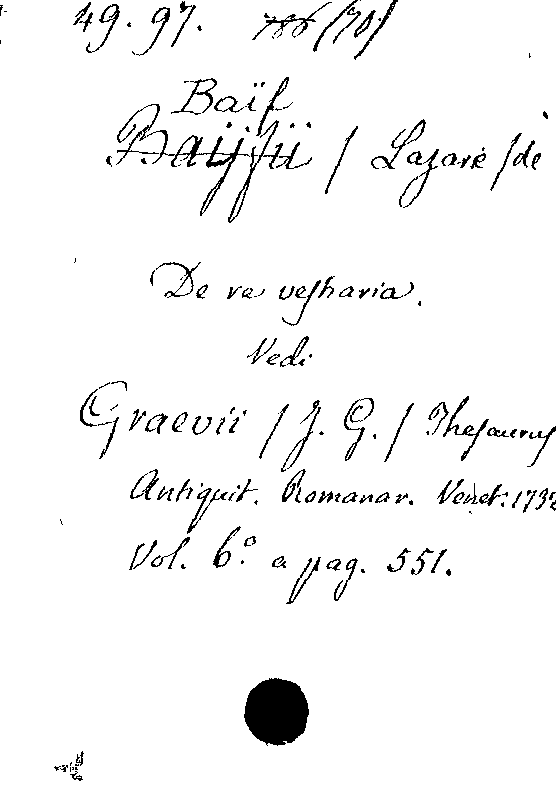 49.97. 786 (70)
Baïf
Baijfii / Lazare / de
De re vestiaria.
Vedi
Graevii / J. G. / Thesaurus
Antiquit. Romanar. Venet. 1732
Vol. 6º a pag. 551.